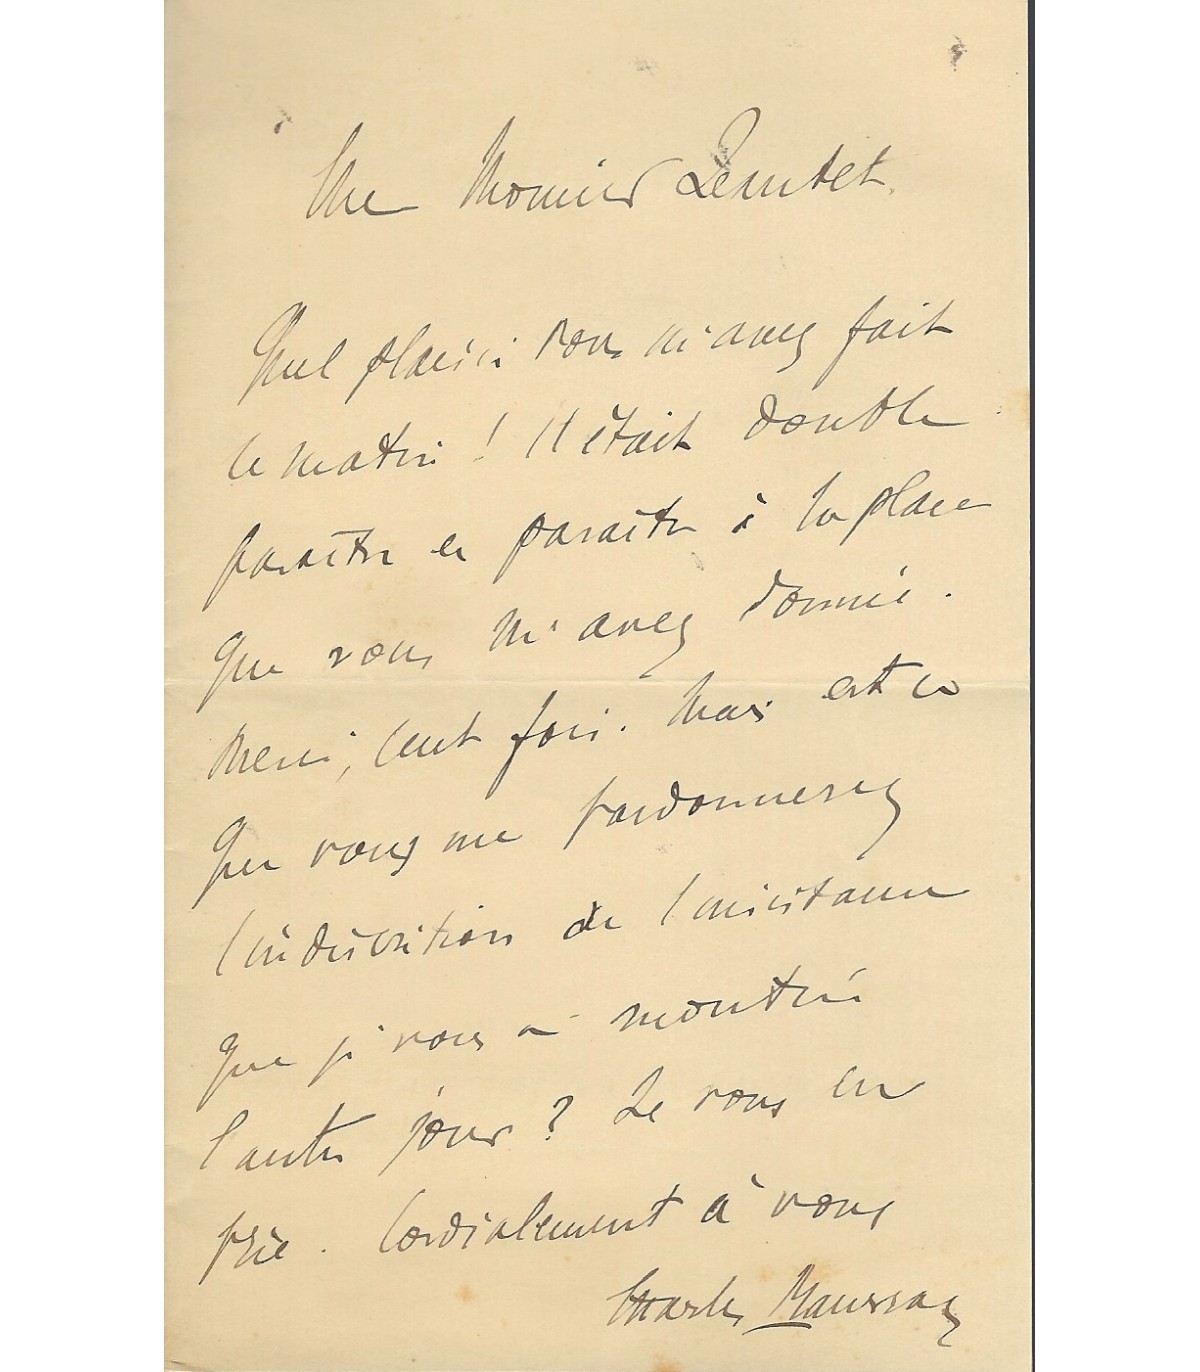 Quel plaisir vous m'avez fait
ce matin ! Il était double
paraître et paraître à la place
que vous m'avez donnée.
Merci, cent fois. Mais est ce
que vous me pardonnerez
l'indiscrétion de l'insistance
que je vous ai montrée
l'autre jour ? Je vous en
prie. Cordialement à vous
Charles